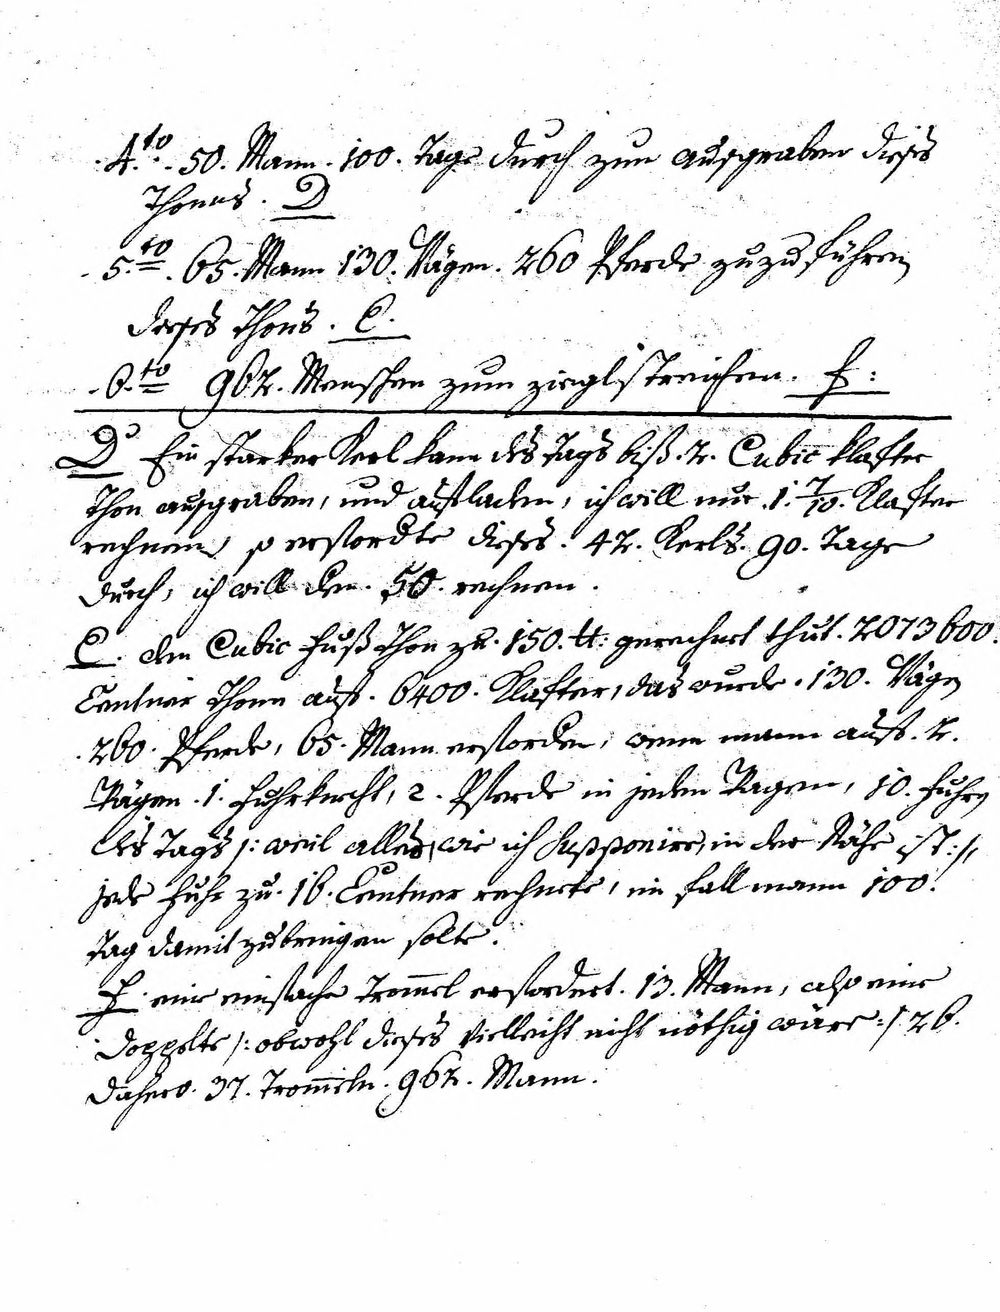 4.to 50. Mann. 100. Tage durch zum ausgraben dieses
Thones. D
5.to. 65. Mann 130. Wägen. 260 Pferde zuzuführen
dieses Thons. E.
6.to 962. Menschen zum zieglstreichen. F:
D Ein starker Kerl kann des Tags biß. 2. Cubic klafter
Thon ausgraben, und aufladen, ich will nur .1. 7/10. Klafter
rechnen, so erfordte dieses. 42. Kerls. 90. Tage
durch, ich will den. 50. rechnen.
E. den Cubic Fuß Thon zu. 150. ℔: gerechnet thut. 2073600.
Centner Thonn auf. 6400. Klafter, das wurde. 130. Wägen
.260. Pferde, 65. Mann erforden, wenn mann auf. 2.
Wägen .1. Fuhrknecht, 2. Pferde in jeden Wagen, 10. Fuhren
des Tags /: weil alles, wie ich supponire, in der Nähe ist :/,
jede Fuhr zu. 16. Centner rechnete, im fall mann 100.
Tag damit zubringen solte.
F. eine einfache Trom̄el erfordert. 13. Mann, also eine
doppelte /: obwohl dieses vielleicht nicht nöthig wäre :/ 26.
dahero. 37. Trom̄eln. 962. Mann.